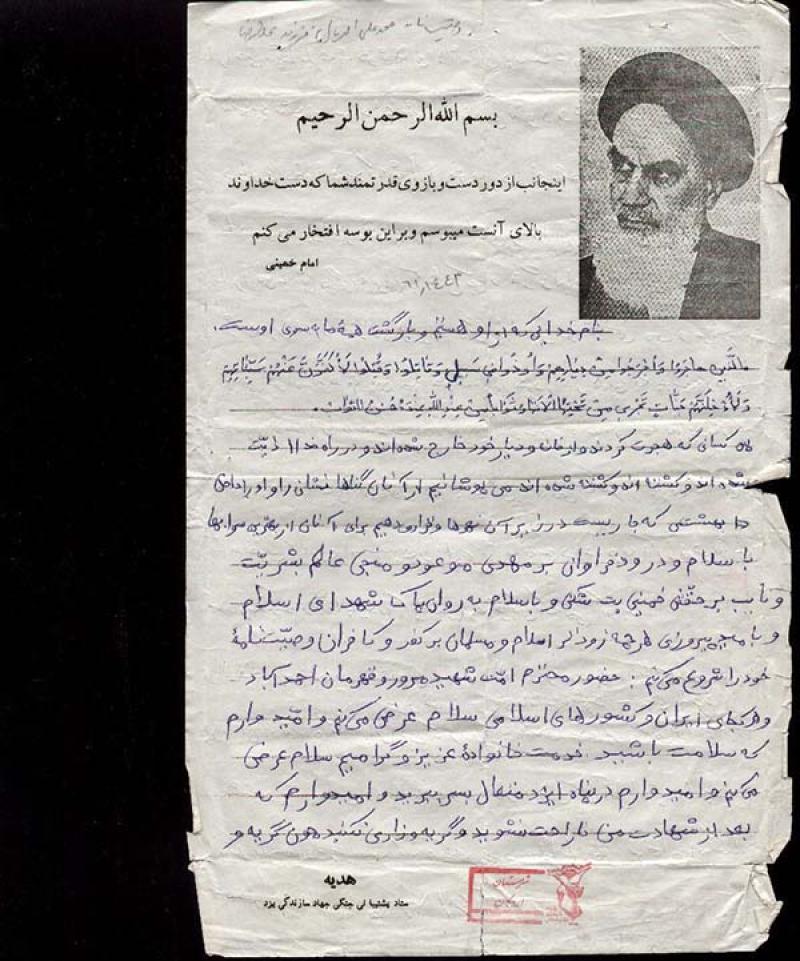 وصیتنامه محمد علی فرزند
بسم الله الرحمن الرحیم
اینجانب از دور دست و بازوی قدرتمند شما که دست خداوند
بالای آنست میبوسم و بر این بوسه افتخار می کنم
امام خمینی
بنام خدایی که از او هستیم و بازگشت همهٔ ما بسوی اوست.
فالذین هاجروا و اخرجوا من دیارهم و اوذوا فی سبیلی و قاتلوا و قتلوا لاکفرن عنهم سیئاتهم
و لادخلنهم جنات تجری من تحتها الانهار ثوابا من عند الله و الله عنده حسن الثواب.
کسانی که هجرت کردند و از خان و دیار خود خارج شده اند و در راه خدا اذیت
شده اند و کشته اند و کشته شده اند می پوشانیم از آنان گناهانشان را و
بهشتی که جاریست در زیر آن نهرها و قرار دهیم برای آنان از بهترین
با سلام و درود فراوان بر مهدی موعود و منجی عالم بشریّت
و نایب بر حقّش خمینی بت شکن و با سلام به روان پاک شهدای اسلام
و با امید پیروزی هر چه زودتر اسلام و مسلمان بر کفر و کافران وصیّت نامهٔ
خود را شروع می کنم : حضور محترم امّت شهید پرور و قهرمان احمدآباد
و هر کجای ایران و کشورهای اسلامی سلام عرض می کنم و امّیدوارم
که سلامت باشید خدمت خانوادهٔ عزیز و گرامیم سلام عرض
می کنم و امیدوارم در پناه ایزد متعال بسر ببرید و امیدوارم که
بعد از شهادت من ناراحت نشوید و گریه وزاری نکنید چون گریه و
هدیه
ستاد پشتیبانی جنگی جهاد سازندگی یزد
شهرستان
اردکان